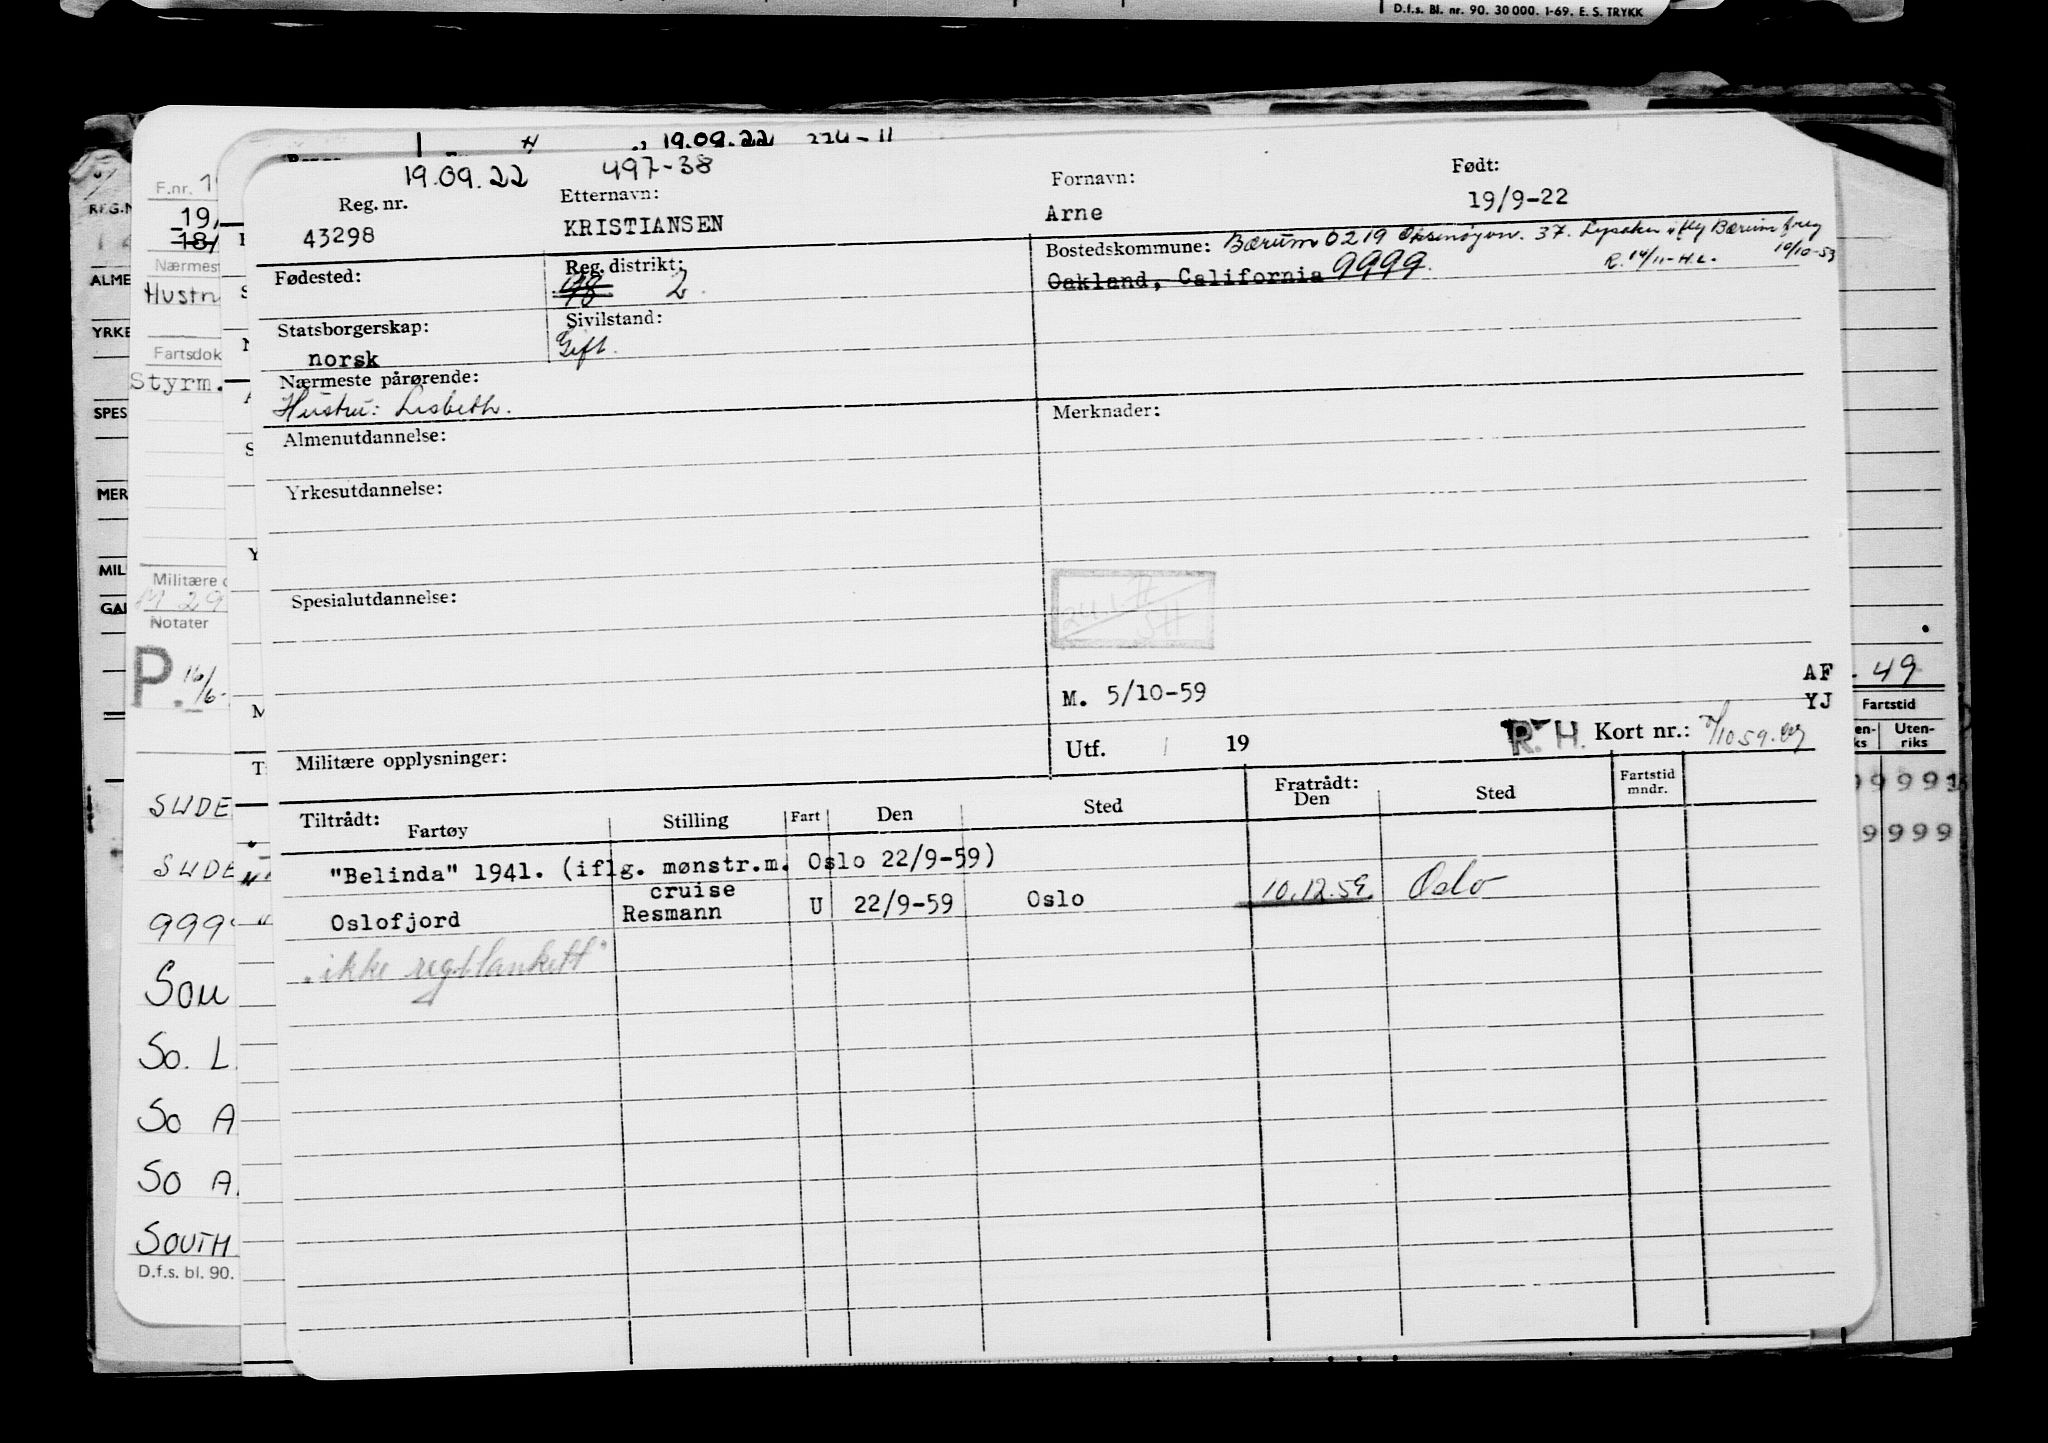 D.f.s. Bl. nr. 90. 30 000. 1-69. E. S. TRYKK
19.09.22
19.09.22 497-38
Reg. nr. Etternavn: Fornavn: Født:
43298 KRISTIANSEN Arne 19/9-22
Fødested: Reg. distrikt: 2
Bostedskommune: Bærum 0219 Oksenøyvn. 37. Lysaker iflg Bærum freg
10/10-53
Oakland, California 9999
R. 14/11-H.L.
Statsborgerskap: Sivilstand:
norsk Gift.
Nærmeste pårørende:
Hustru: Lisbeth.
Almenutdannelse: Merknader:
Yrkesutdannelse:
Spesialutdannelse:
M. 5/10-59
AF
YJ
Militære opplysninger: Utf. / 19 R. H. Kort nr.:
Tiltrådt: Fartøy Stilling Fart Den Sted Fratrådt: Den Sted Fartstid mndr.
"Belinda" 1941. (iflg. mønstr.m. Oslo 22/9-59)
cruise
Oslofjord Resmann U 22/9-59 Oslo 10.12.59. Oslo
"ikke regblankett"
F.nr.
19/
18/
Nærmest
Hustr
Fartsdok
Styrm.
Militære
M 29
Notater
P. 16/6-
SUDE
SUDE
999
SOU
SO. L
SO A
SO A.
SOUTH
D.f.s. bl. 90.
REG.N
ALME
YRKE
SPES
MER
MIL
GAI
49
Fartstid
Uten-
riks
9 9 9 9
9 9 9 9